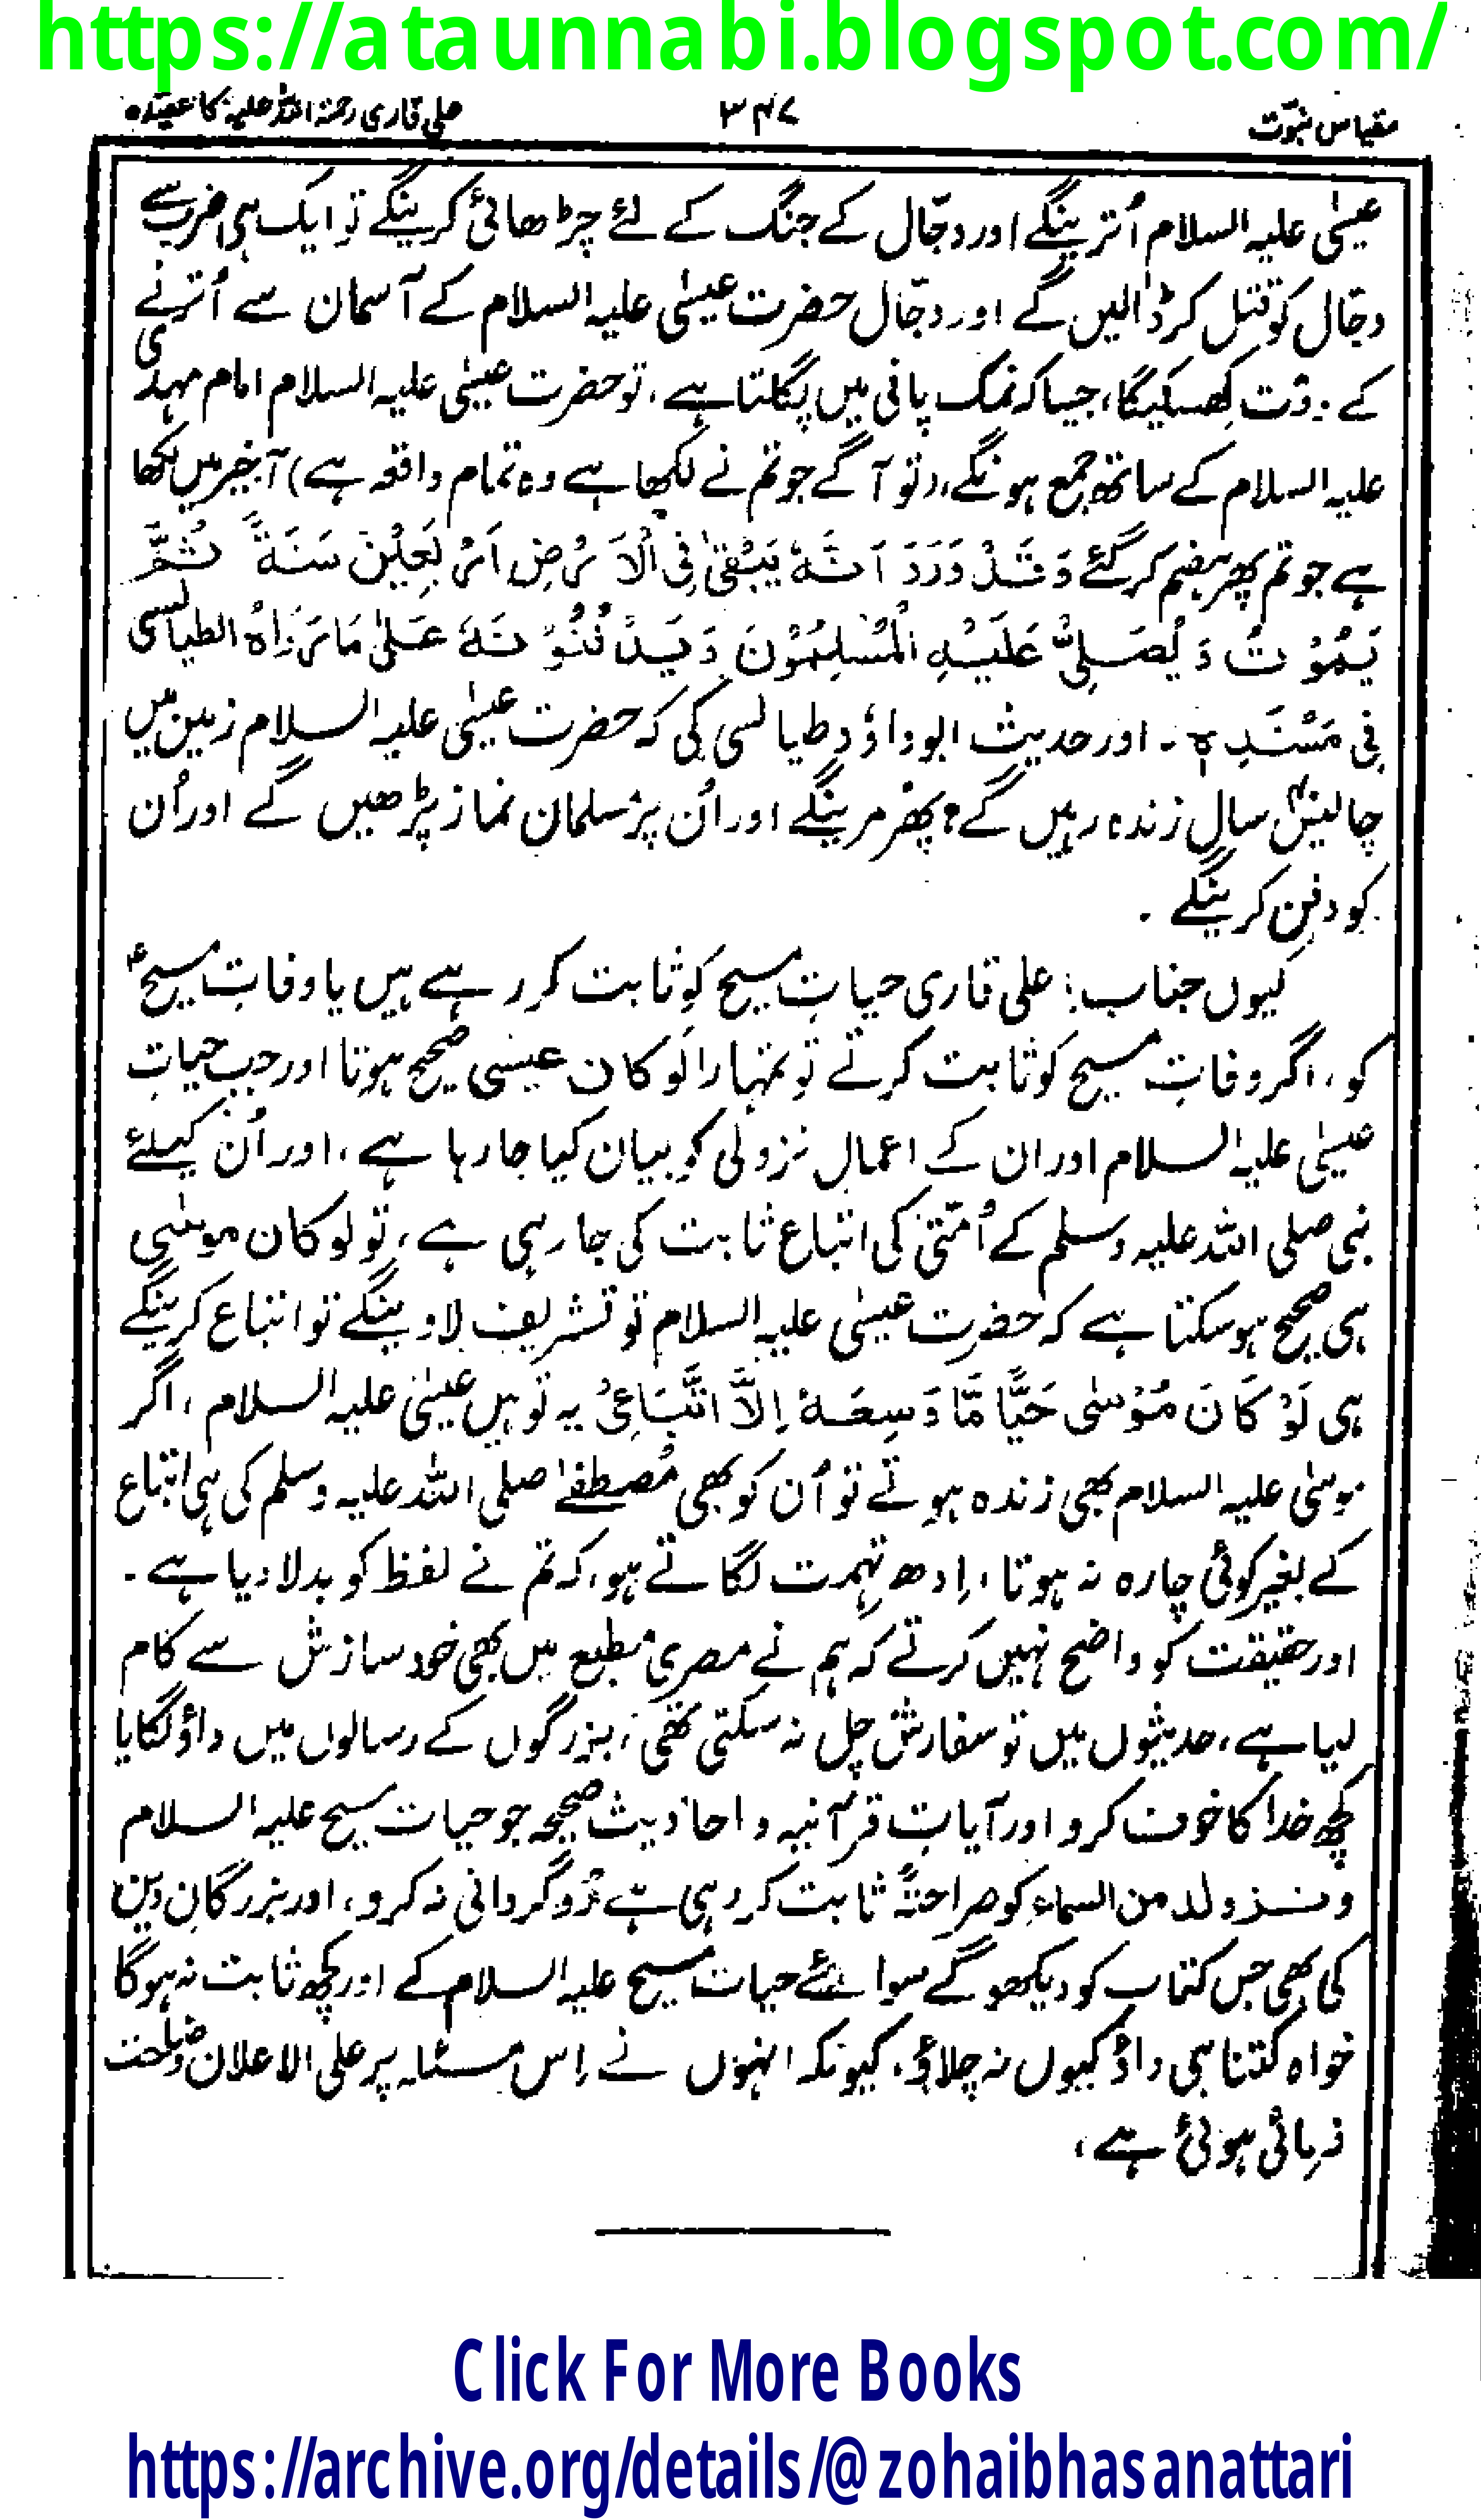 https://ataunnabi.blogspot.com/
مقیاس نبوّت ۳۴۷ علی قاری رحمۃ اللہ علیہ کا عقیدہ
عیسٰی علیہ السلام اُترینگے اور دجّال کے جنگ کے لئے چڑھائی کرینگے تو ایک ہی ضرب سے
دجّال کو قتل کر ڈالیں گے اور دجّال حضرت عیسٰی علیہ السلام کے آسمان سے اُترنے
کے وقت کھسکیگا، جیسا کہ نمک پانی میں پگلتا ہے، تو حضرت عیسٰی علیہ السلام امام مہدی
علیہ السلام کے ساتھ جمع ہونگے، (تو آگے جو تم نے لکھا ہے وہ تمام واقعہ ہے) آخیر میں لکھا
ہے جو تم پھر ہضم کر گئے وَقَدْ وَرَدَ اَنَّهٗ يَبْقٰى فِى الْاَرْضِ اَرْبَعِيْنَ سَنَةً ثُمَّ
يَمُوْتُ وَيُصَلِّىْ عَلَيْهِ الْمُسْلِمُوْنَ وَيَدْفُنُوْنَهٗ عَلٰى مَا رَوَاهُ الطيالسى
فِى مَسْنَدِهٖ ۔ اور حدیث ابوداؤد طیالسی کی کہ حضرت عیسٰی علیہ السلام زمین میں
چالیس سال زندہ رہیں گے؟ پھر مرینگے اور اُن پر مسلمان نماز پڑھیں گے اور اُن
کو دفن کرینگے ۔
کیوں جناب؛ علی قاری حیاتِ مسیح کو ثابت کر رہے ہیں یا وفاتِ مسیحؑ
کو، اگر وفاتِ مسیح کو ثابت کرتے تو تمہارا لَوْ کَانَ عیسٰی صحیح ہوتا اور جب حیاتِ
عیسٰی علیہ السلام اور ان کے اعمالِ نزولی کو بیان کیا جا رہا ہے، اور اُن کیلئے
نبی صلی اللہ علیہ وسلم کے اُمّتی کی اتباع ثابت کی جا رہی ہے، تو لو کان موسٰی
ہی صحیح ہو سکتا ہے کہ حضرت عیسٰی علیہ السلام تو تشریف لاوینگے تو اتباع کرینگے
ہی لَوْ كَانَ مُوْسٰى حَيًّا مَّا وَسِعَهٗ اِلَّا اتَّبَاعِىْ یہ تو ہیں عیسٰی علیہ السلام، اگر
موسٰی علیہ السلام بھی زندہ ہوتے تو اُن کو بھی مُصطفےٰ صلی اللہ علیہ وسلم کی ہی اتباع
کے بغیر کوئی چارہ نہ ہوتا، اِدھر تہمت لگاتے ہو، کہ تم نے لفظ کو بدلا دیا ہے ۔
اور حقیقت کو واضح نہیں کرتے کہ ہم نے مصری مطبع میں بھی خود سازش سے کام
لیا ہے، حدیثوں میں تو سفارش چل نہ سکتی تھی، بزرگوں کے رسالوں میں داؤ لگایا
کچھ خدا کا خوف کرو اور آیاتِ قرآنیہ و احادیث صحیحہ جو حیات مسیح علیہ السلام
و نزولہ من السماء کو صراحتہً ثابت کر رہی ہے رُو گردانی نہ کرو، اور بزرگانِ دین
کی بھی جس کتاب کو دیکھو گے سوائے حیات مسیح علیہ السلام کے اور کچھ ثابت نہ ہو گا
خواہ کتنا ہی داؤ کیوں نہ چلاؤ، کیونکہ انہوں نے اِس مسئلہ پر علی الاعلان وضاحت
فرمائی ہوئی ہے،
Click For More Books
https://archive.org/details/@zohaibhasanattari